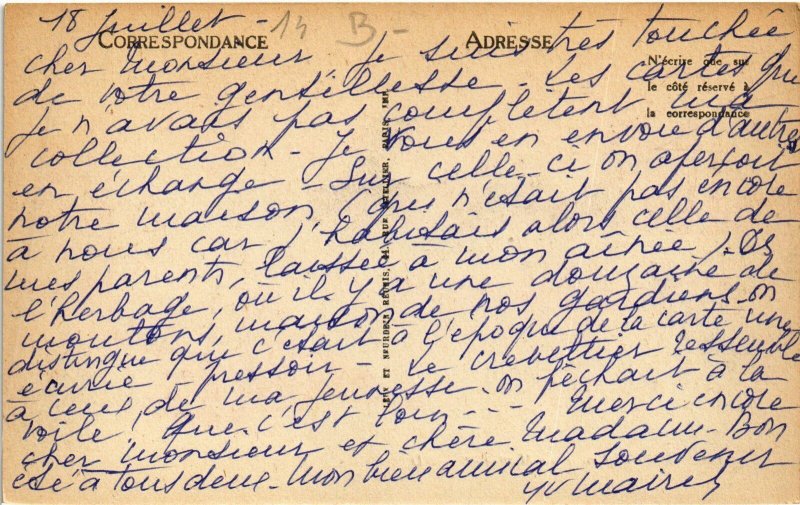 18 Juillet - 14 B -
CORRESPONDANCE ADRESSE
cher Monsieur je suis très touchée
N'écrire que sur
le côté réservé à
la correspondance
de votre gentillesse - Les cartes que
je n'avais pas complètent ma
collection - Je vous en envoie d'autres
en échange - Sur celle-ci on aperçoit
notre maison (qui n'était pas encore
à nous car j'habitais alors celle de
mes parents, laissée à mon aînée). Ds
l'herbage, où il y a une douzaine de
moutons, maison de nos gardiens on
distingue que c'était à l'époque de la carte une
écurie pressoir - Le crevettier ressemble
à ceux de ma jeunesse. on pêchait à la
voile, que c'est loin --- Merci encore
cher monsieur et chère Madame. Bon
été à tous deux. mon bien amical souvenir
LEVY ET NEURDEIN REUNIS, 44, RUE LETELLIER, PARIS. IMP.